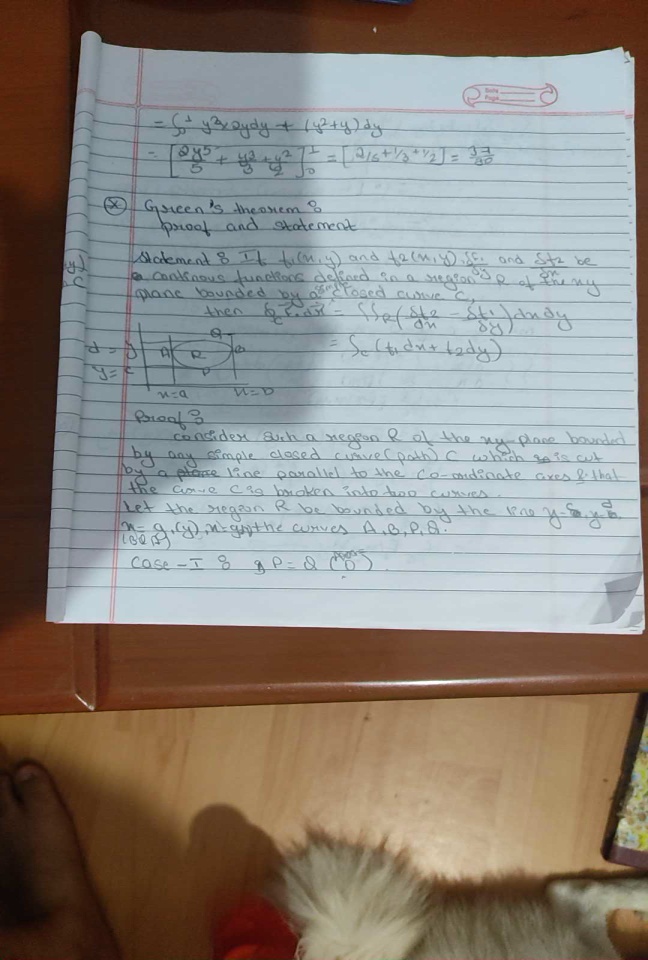 Date
Page
= ∫₀¹ y²×2ydy + (y²+y)dy
= [2y⁵/5 + y³/3 + y²/2]₀¹ = [2/5+1/3+1/2] = 37/30
Green's theorem :
proof and statement
Statement : If f1(x,y) and f2(x,y), δf1/δy and δf2/δx be
continous functions defined in a region R of the xy
plane bounded by a simple closed curve C,
then ∮c F.dr = ∫∫R (δf2/δx - δf1/δy) dxdy
= ∫c (f1dx + f2dy)
Q
A R B
P
y=c
x=a x=b
Proof :
consider such a region R of the xy-plane bounded
by any simple closed curve (path) C which is cut
by a line parallel to the co-ordinate axes & that
the curve C is broken into two curves.
Let the region R be bounded by the line
the curves A, B, P, Q.
Case - I : P = Q